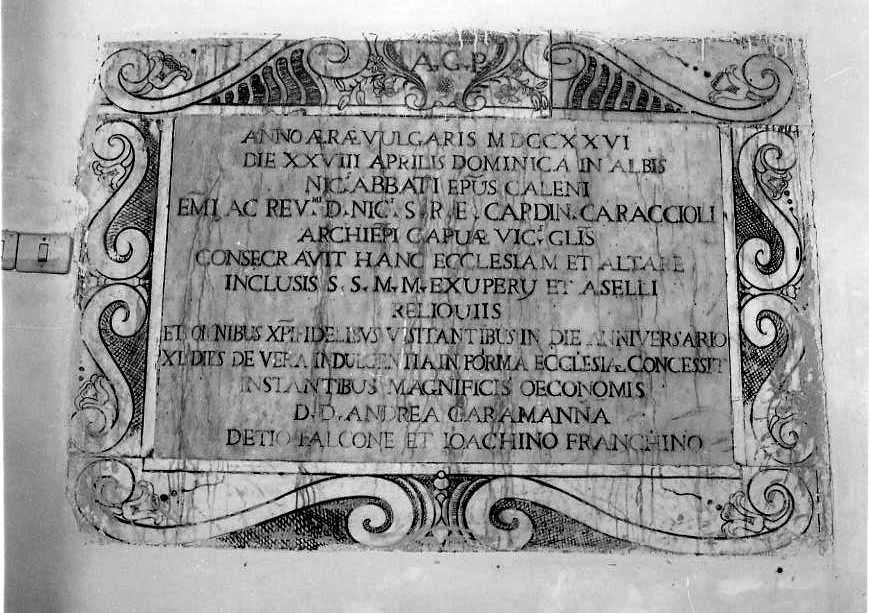 A.G.P.
ANNO ÆRÆ VULGARIS MDCCXXVI
DIE XXVIII APRILIS DOMINICA IN ALBIS
NIC. ABBATI EPŪS CALENI
EMI AC REV. D. NIC. S. R. E. CARDIN. CARACCIOLI
ARCHIEPI CAPUÆ VIC. GLIS
CONSECRAVIT HANC ECCLESIAM ET ALTARE
INCLUSIS S. S. M. M. EXUPERIJ ET ASELLI
RELIQUIIS
ET OMNIBUS XPI FIDELIBUS VISITANTIBUS IN DIE ANNIVERSARIO
XL DIES DE VERA INDULGENTIA IN FORMA ECCLESIÆ CONCESSIT
INSTANTIBUS MAGNIFICIS OECONOMIS
D. D. ANDREA CARAMANNA
DETIO FALCONE ET IOACHINO FRANCHINO